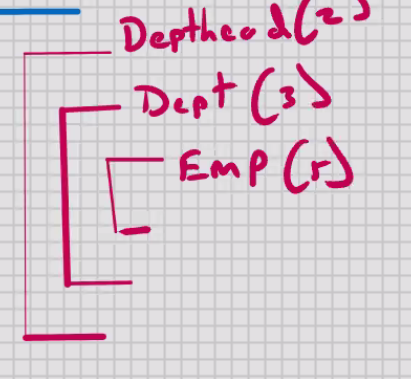 Depthead(2)
Dept (3)
Emp (5)